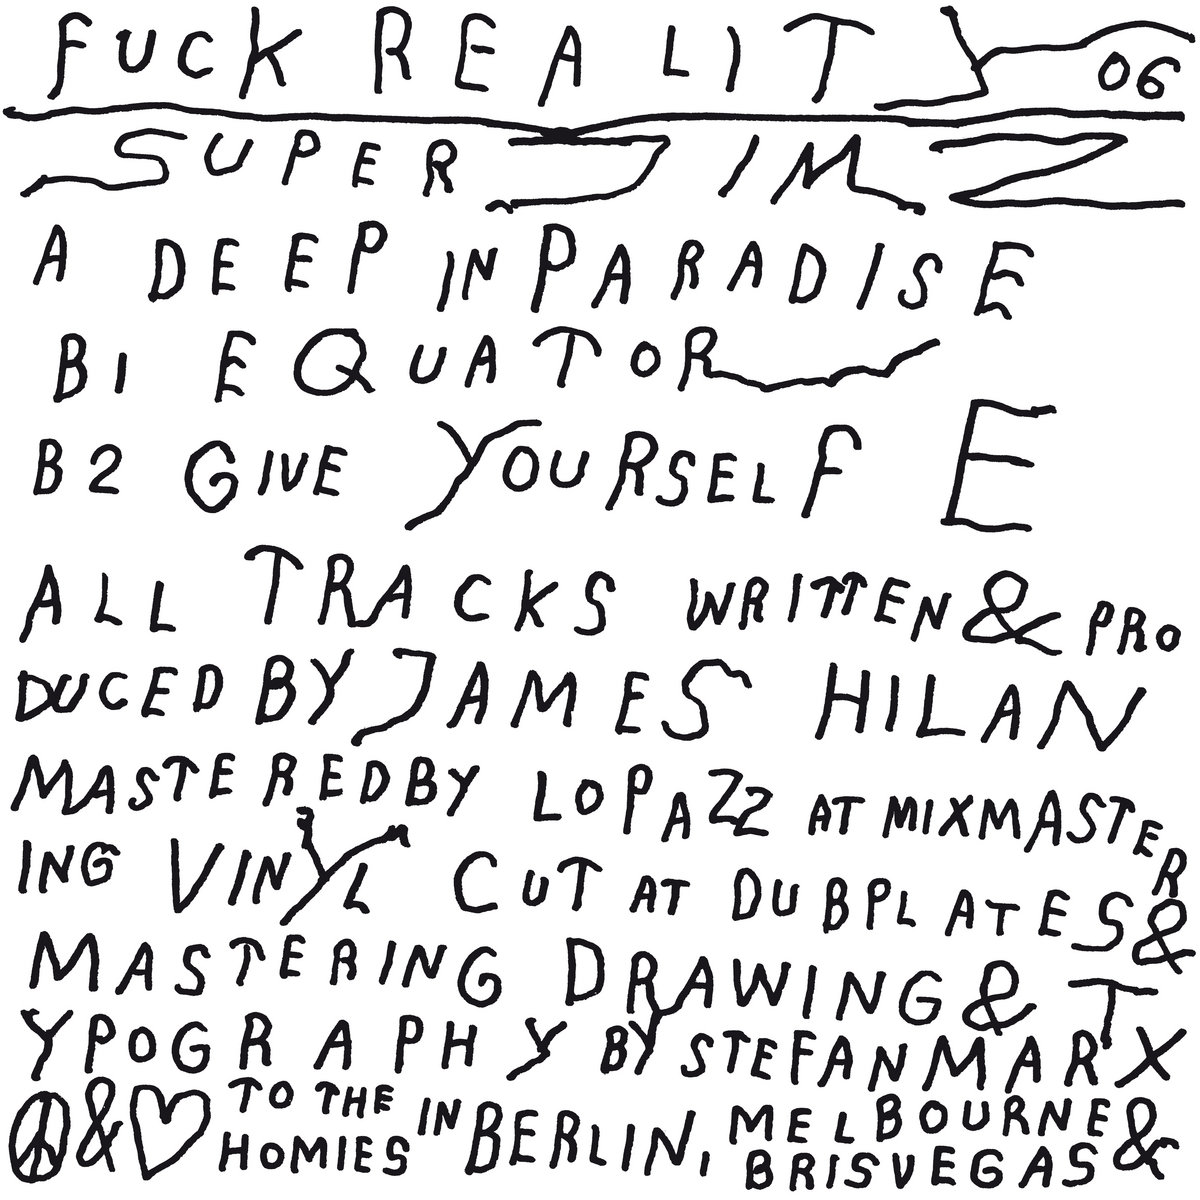 FUCK REALITY 06
SUPER JIMZ
A DEEP IN PARADISE
B1 EQUATOR
B2 GIVE YOURSELF E
ALL TRACKS WRITTEN & PRO
DUCED BY JAMES HILAN
MASTERED BY LOPAZZ AT MIXMASTER
ING VINYL CUT AT DUBPLATES &
MASTERING DRAWING & T
YPOGRAPHY BY STEFAN MARX
☮ & ♡ TO THE HOMIES IN BERLIN, MELBOURNE & BRISVEGAS